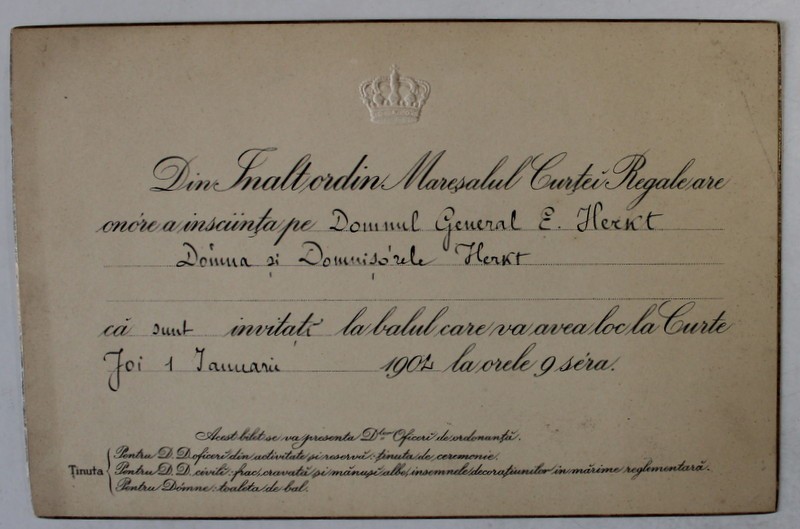 Din Inalt ordin Mareșalul Curței Regale are
onóre a insciința pe Domnul General E. Herkt
Dómna și Domnișórele Herkt
că sunt invitați la balul care va avea loc la Curte
Joi 1 Ianuarii 1904 la orele 9 séra.
Acest bilet se va presenta D-lor Oficeri de ordonanță.
Ținuta
Pentru D. D. oficeri din activitate și reservă: ținuta de ceremonie.
Pentru D. D. civili: frac, cravată și mănuși albe, insemnele decorațiunilor in mărime reglementară.
Pentru Dómne: toaleta de bal.